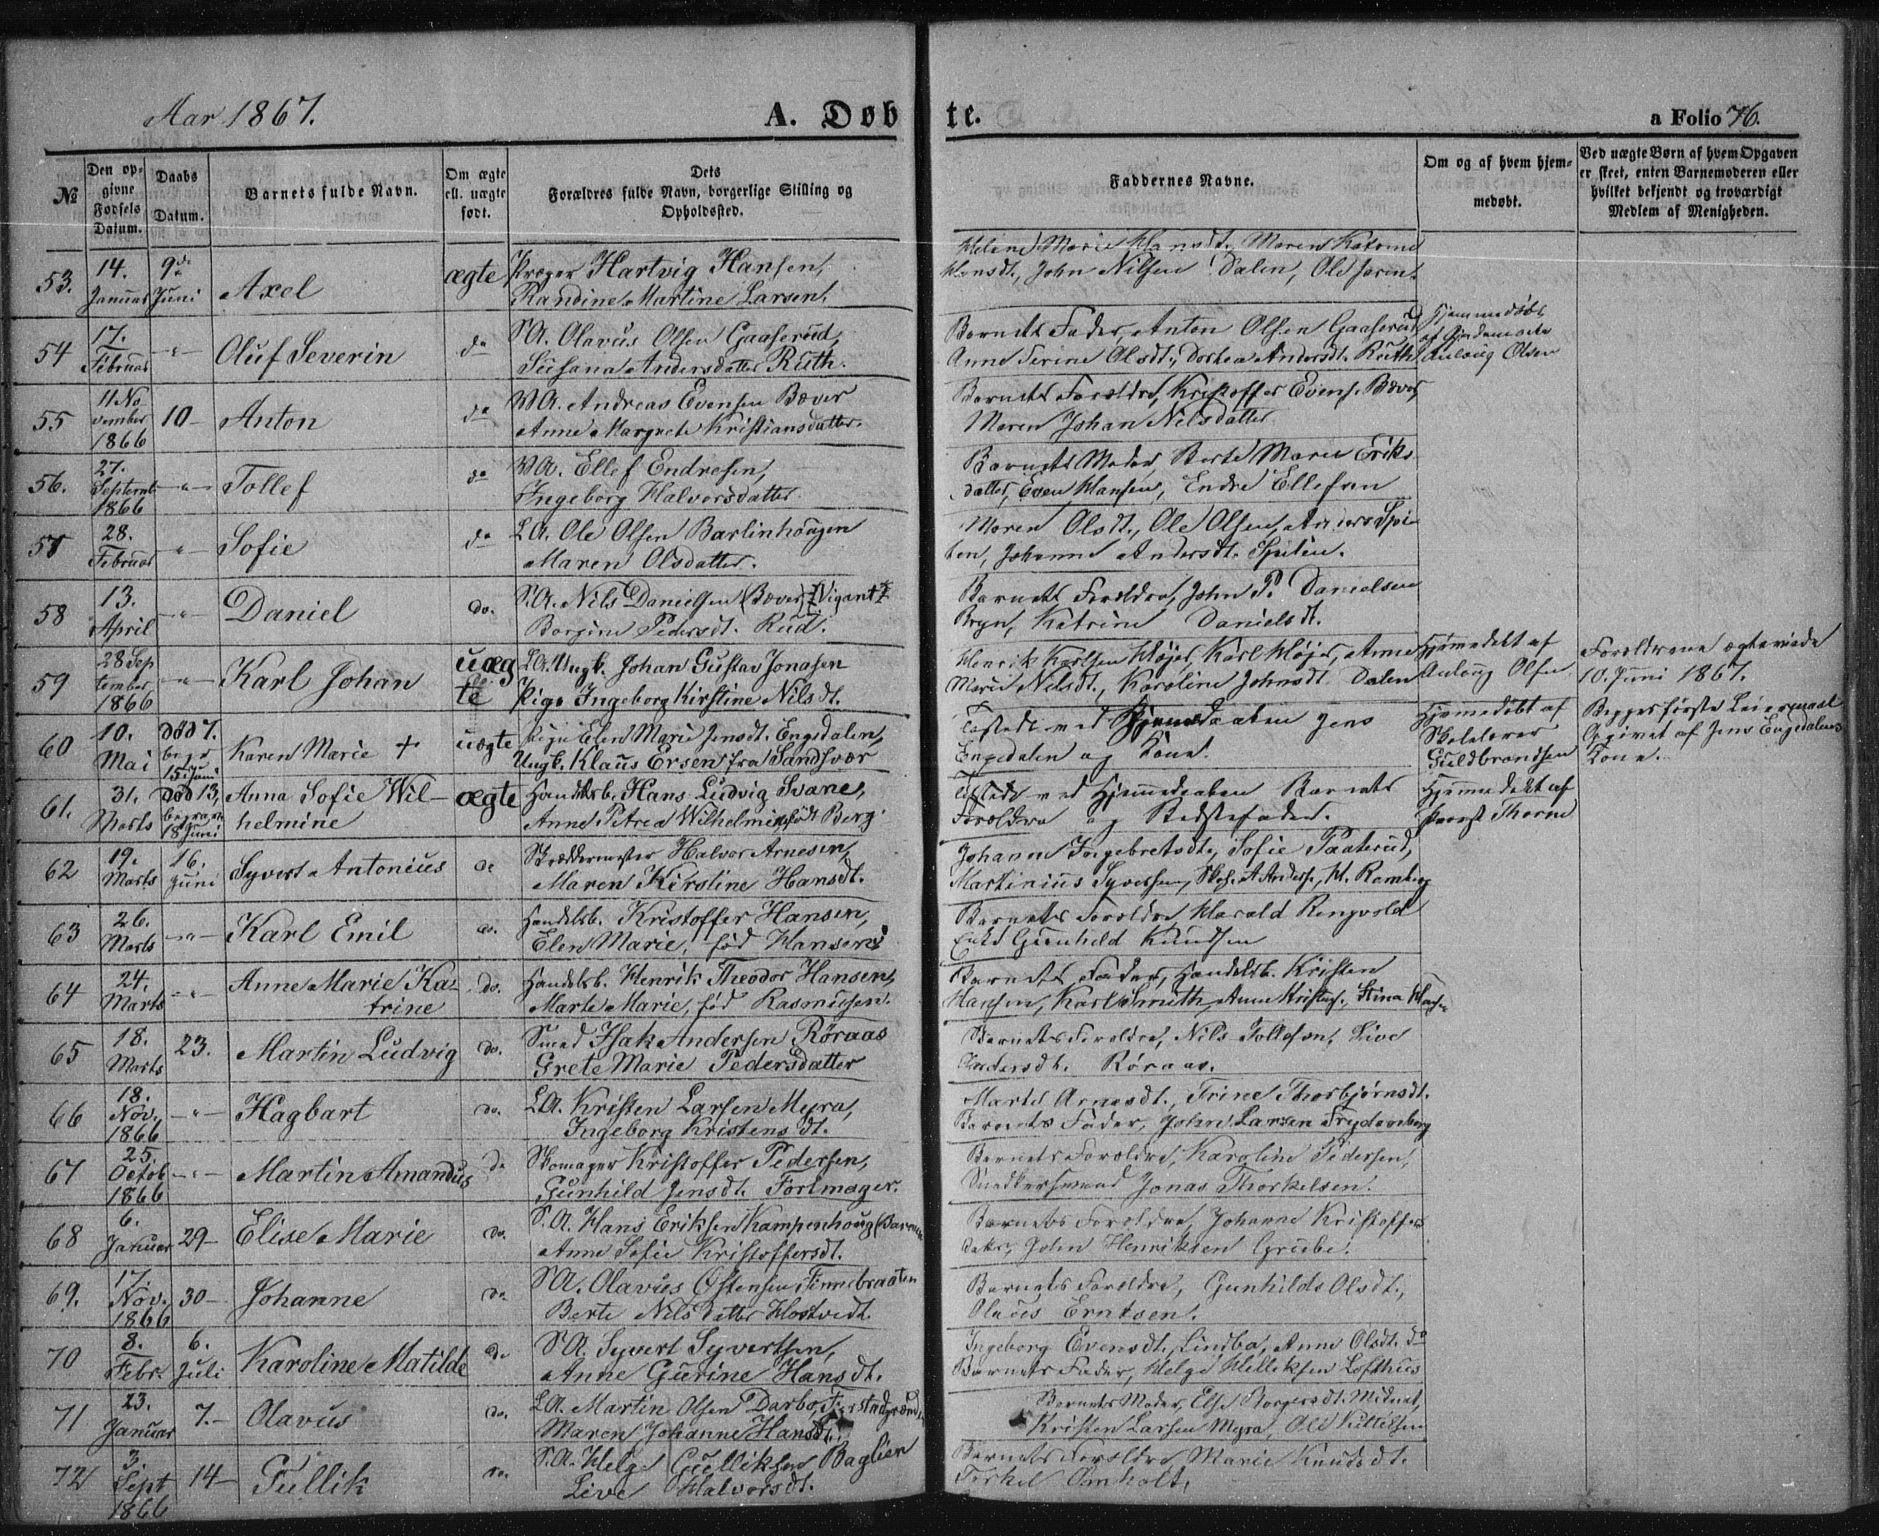 Aar 1867.
A. Døbte.
a Folio 76.
No
Den opgivne Fødsels Datum.
Daabs Datum.
Barnets fulde Navn.
Om ægte ell. uægte født.
Dets Forældres fulde Navn, borgerlige Stilling og Opholdssted.
Faddernes Navne.
Om og af hvem hjemmedøbt.
Ved uægte Børn af hvem Opgaven er skeet, enten Barnemoderen eller hvilket bekjendt og troværdigt Medlem af Menigheden.
53. 14. Januar 9de Juni Axel ægte Præger Hartvig Hansen,
Randine Martine Larsen.
Helene Marie Hansdt., Maren Katrine
Hansdt., John Nilsen Dalen, Ole
54 17. Februar -"- Oluf Severin do S.A. Olavus Olsen Gaaserud,
Susana Andersdatter Ruth.
Barnets Fader, Anton Olsen Gaaserud,
Anne Serine Olsdt., Dorthea Andersdt. Ruth
Hjemmedøbt
af Gjordemoder
Aulaug Olsen
55 11 November 1866 10- Anton do V.A. Andreas Evensen Bæver
Anne Margrete Kristiansdatter.
Barnets Forældre, Kristoffer Evens. Bæver
Maren Johan Nilsdatter
56. 27. Septemb. 1866 -"- Tollef do V.A. Ellef Endresen,
Ingeborg Halvorsdatter.
Barnets Moder, Berte Marie Eriks
datter, Even Hansen, Endre Ellefsen
57 28. Februar " Sofie do L.A. Ole Olsen Barlinhaugen
Maren Olsdatter.
Maren Olsdt., Ole Olsen, Anders Spi
ten, Johanne Andersdt. Spiten.
58 13. April -"- Daniel do. S.A. Nils Danielsen (Bæver) (Vigant)
Borgine Pedersdt. Rud.
Barnets Forældre, John P. Danielsen
Bryn, Katrine Danielsdt.
59 28 September 1866 -"- Karl Johan uægte L.A. Ungk. Johan Gustav Jonasen
Pige Ingeborg Kirstine Nilsdt.
Henrik Karlsen Højer, Karl Højer, Anne
Marie Nilsdt., Karoline Johnsdt. Dalen
Hjemmedøbt af
Aulaug Olsen
Forældrene ægteviede
10. Juni 1867.
60 10. Mai død 7. begr. 15 Juni Karen Marie + uægte Pige Elen Marie Jensdt. Engedalen,
Ungk. Klaus Ersen fra Sandsvær
Tilstede ved Hjemmedaaben Jens
Engedalen og Kone.
Hjemmedøbt af
Skolelærer
Guldbrandsen
Begges første Leiermaal
Opgivet af Jens Engedalens
Kone.
61. 31. Marts død 13, begraven 18 Juni Anna Sofie Wil-
helmine ægte Handelsb. Hans Ludvig Svane,
Anne Petrea Wilhelmine født Berg
Tilstede ved Hjemmedaaben Barnets
Forældre og Bedstefader.
Hjemmedøbt af
Provst Thorne
62 19. Marts 16. Juni Syvert Antonius do Skræddermester Halvor Arnesen,
Maren Kirstine Hansdt.
Johanne Ingebretsdt., Sofie Paaterud,
Martinius Syversen, A. Anders., H. Ramberg
63 26. Marts -"- Karl Emil do. Handelsb. Kristoffer Hansen,
Elen Marie, fød Hansen
Barnets Forældre, Harald Ringvold
Enke Gunhild Knudsen
64 24. Marts -"- Anne Marie Ka-
trine do. Handelsb. Henrik Theodor Hansen,
Marte Marie, fød Rasmusen.
Barnets Fader, Handelsb. Kristen
Hansen, Karl Smith, Anne Kristens., Stina Hansen
65 18. Marts 23. Martin Ludvig do. Smed Isak Andersen Røraas
Grete Marie Pedersdatter
Barnets Forældre, Nils Tollefsen, Live
Andersdt. Røraas.
66 18. Nov. 1866 -"- Hagbart do. L.A. Kristen Larsen Myra,
Ingeborg Kristensdt.
Marte Arnesdt., Trine Thorbjørnsdt.
Barnets Fader, John Larsen Frydenberg
67 25. Octob 1866 -"- Martin Amandus do Skomager Kristoffer Pedersen,
Gunhild Jensdt. Formager.
Barnets Forældre, Karoline Pedersen,
Snedkersvend Jonas Thorkelsen.
68 6. Januar 29- Elise Marie do. S.A. Hans Eriksen Kampenhoug
Anne Sofie Kristoffersdt.
Barnets Forældre, Johanne Kristoffers
datter, John Henriksen Grube.
69. 17. Nov. 1866 30- Johanne do S.A. Olavus Østensen Finnebraaten
Berte Nilsdatter Hostvedt.
Barnets Forældre, Gunhild Olsdt.,
Olaus Erntsen.
70 8. Febr. 6. Juli Karoline Matilde do S.A. Syvert Syvertsen,
Anne Gurine Hansdt.
Ingeborg Evensdt. Lindbo, Anne Olsdt. do
Barnets Fader, Helge Helliksen Lofthus
71 23. Januar 7.- Olavus do. L.A. Martin Olsen Darbo,
Maren Johanne Hansdt.
Barnets Moder, Else Borgersdt. Midnat,
Kristen Larsen Myra, Ole Kittilsen
72 3. Sept 1866 14- Gullik do. S.A. Helge Gulliksen Baglien
Live Halvorsdt.
Barnets Forældre Marie Knudsdt.
Torkel Omholt.